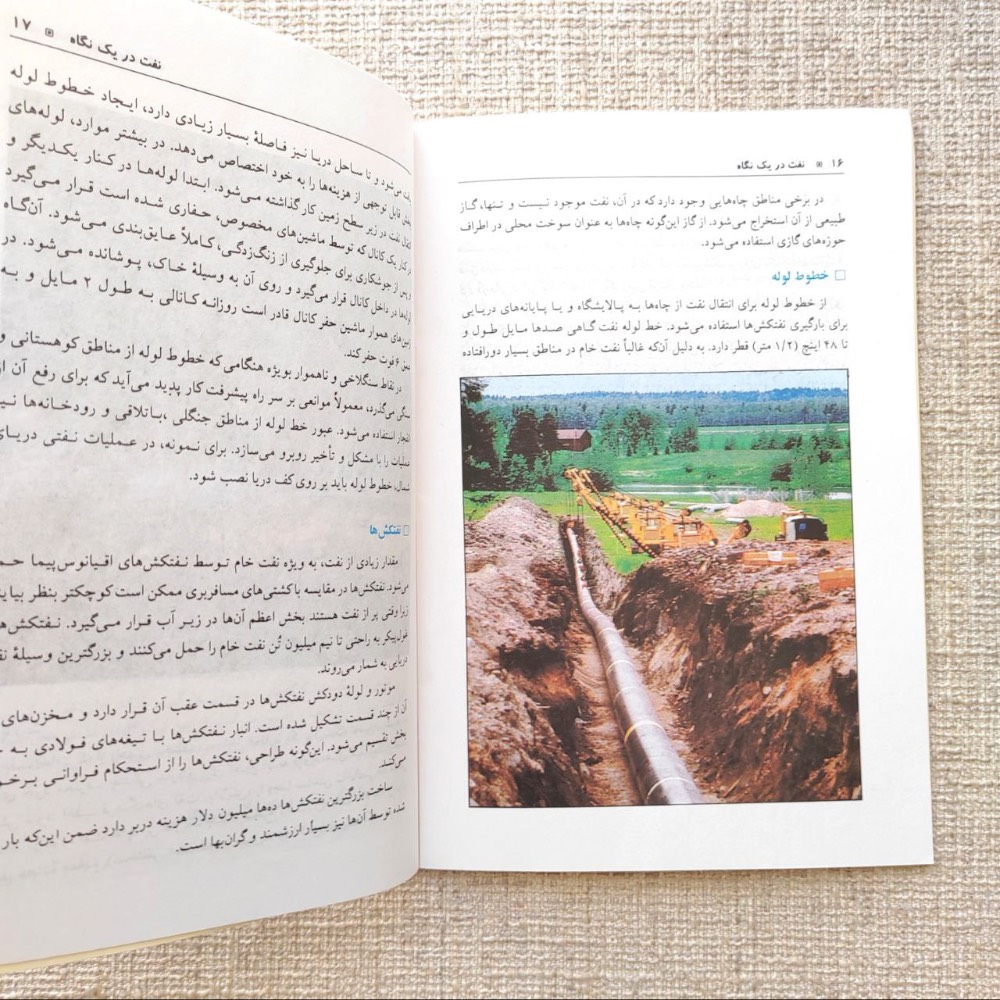 ۱۶ ▣ نفت در یک نگاه
در برخی مناطق چاه‌هایی وجود دارد که در آن، نفت موجود نیست و تنها، گاز
طبیعی از آن استخراج می‌شود. از گاز این‌گونه چاه‌ها به عنوان سوخت محلی در اطراف
حوزه‌های گازی استفاده می‌شود.
□ خطوط لوله
از خطوط لوله برای انتقال نفت از چاه‌ها به پالایشگاه و یا پایانه‌های دریایی
برای بارگیری نفتکش‌ها استفاده می‌شود. خط لوله نفت گاهی صدها مایل طول و
تا ۴۸ اینچ (۱/۲ متر) قطر دارد. به دلیل آن‌که غالباً نفت خام در مناطق بسیار دورافتاده
نفت در یک نگاه ▣ ۱۷
می‌شود و تا ساحل دریا نیز فاصلهٔ بسیار زیادی دارد، ایجاد خطوط لوله
قابل توجهی از هزینه‌ها را به خود اختصاص می‌دهد. در بیشتر موارد، لوله‌های
انتقال نفت در زیر سطح زمین کار گذاشته می‌شود. ابتدا لوله‌ها در کنار یکدیگر و
در کنار یک کانال که توسط ماشین‌های مخصوص، حفاری شده است قرار می‌گیرد
و پس از جوشکاری برای جلوگیری از زنگ‌زدگی، کاملاً عایق‌بندی می‌شود. آن‌گاه
لوله‌ها در داخل کانال قرار می‌گیرد و روی آن به وسیلهٔ خاک، پوشانده می‌شود. در
زمین‌های هموار ماشین حفر کانال قادر است روزانه کانالی به طول ۲ مایل و به
عمق ۶ فوت حفر کند.
در نقاط سنگلاخی و ناهموار بویژه هنگامی که خطوط لوله از مناطق کوهستانی و
سنگی می‌گذرد، معمولاً موانعی بر سر راه پیشرفت کار پدید می‌آید که برای رفع آن از
انفجار استفاده می‌شود. عبور خط لوله از مناطق جنگلی، باتلاقی و رودخانه‌ها نیز
عملیات را با مشکل و تأخیر روبرو می‌سازد. برای نمونه، در عملیات نفتی دریای
شمال، خطوط لوله باید بر روی کف دریا نصب شود.
□ نفتکش‌ها
مقدار زیادی از نفت، به ویژه نفت خام توسط نفتکش‌های اقیانوس‌پیما
می‌شود. نفتکش‌ها در مقایسه با کشتی‌های مسافربری ممکن است کوچکتر بنظر
زیرا وقتی پر از نفت هستند بخش اعظم آن‌ها در زیر آب قرار می‌گیرد. نفتکش‌های
غول‌پیکر به راحتی تا نیم میلیون تُن نفت خام را حمل می‌کنند و بزرگترین وسیلهٔ
دریایی به شمار می‌روند.
موتور و لولهٔ دودکش نفتکش‌ها در قسمت عقب آن قرار دارد و مخزن‌های
آن از چند قسمت تشکیل شده است. انبار نفتکش‌ها با تیغه‌های فولادی به
بخش تقسیم می‌شود. این‌گونه طراحی، نفتکش‌ها را از استحکام فراوانی
می‌کند.
ساخت بزرگترین نفتکش‌ها ده‌ها میلیون دلار هزینه دربر دارد ضمن این‌که بار
شده توسط آن‌ها نیز بسیار ارزشمند و گران‌بها است.